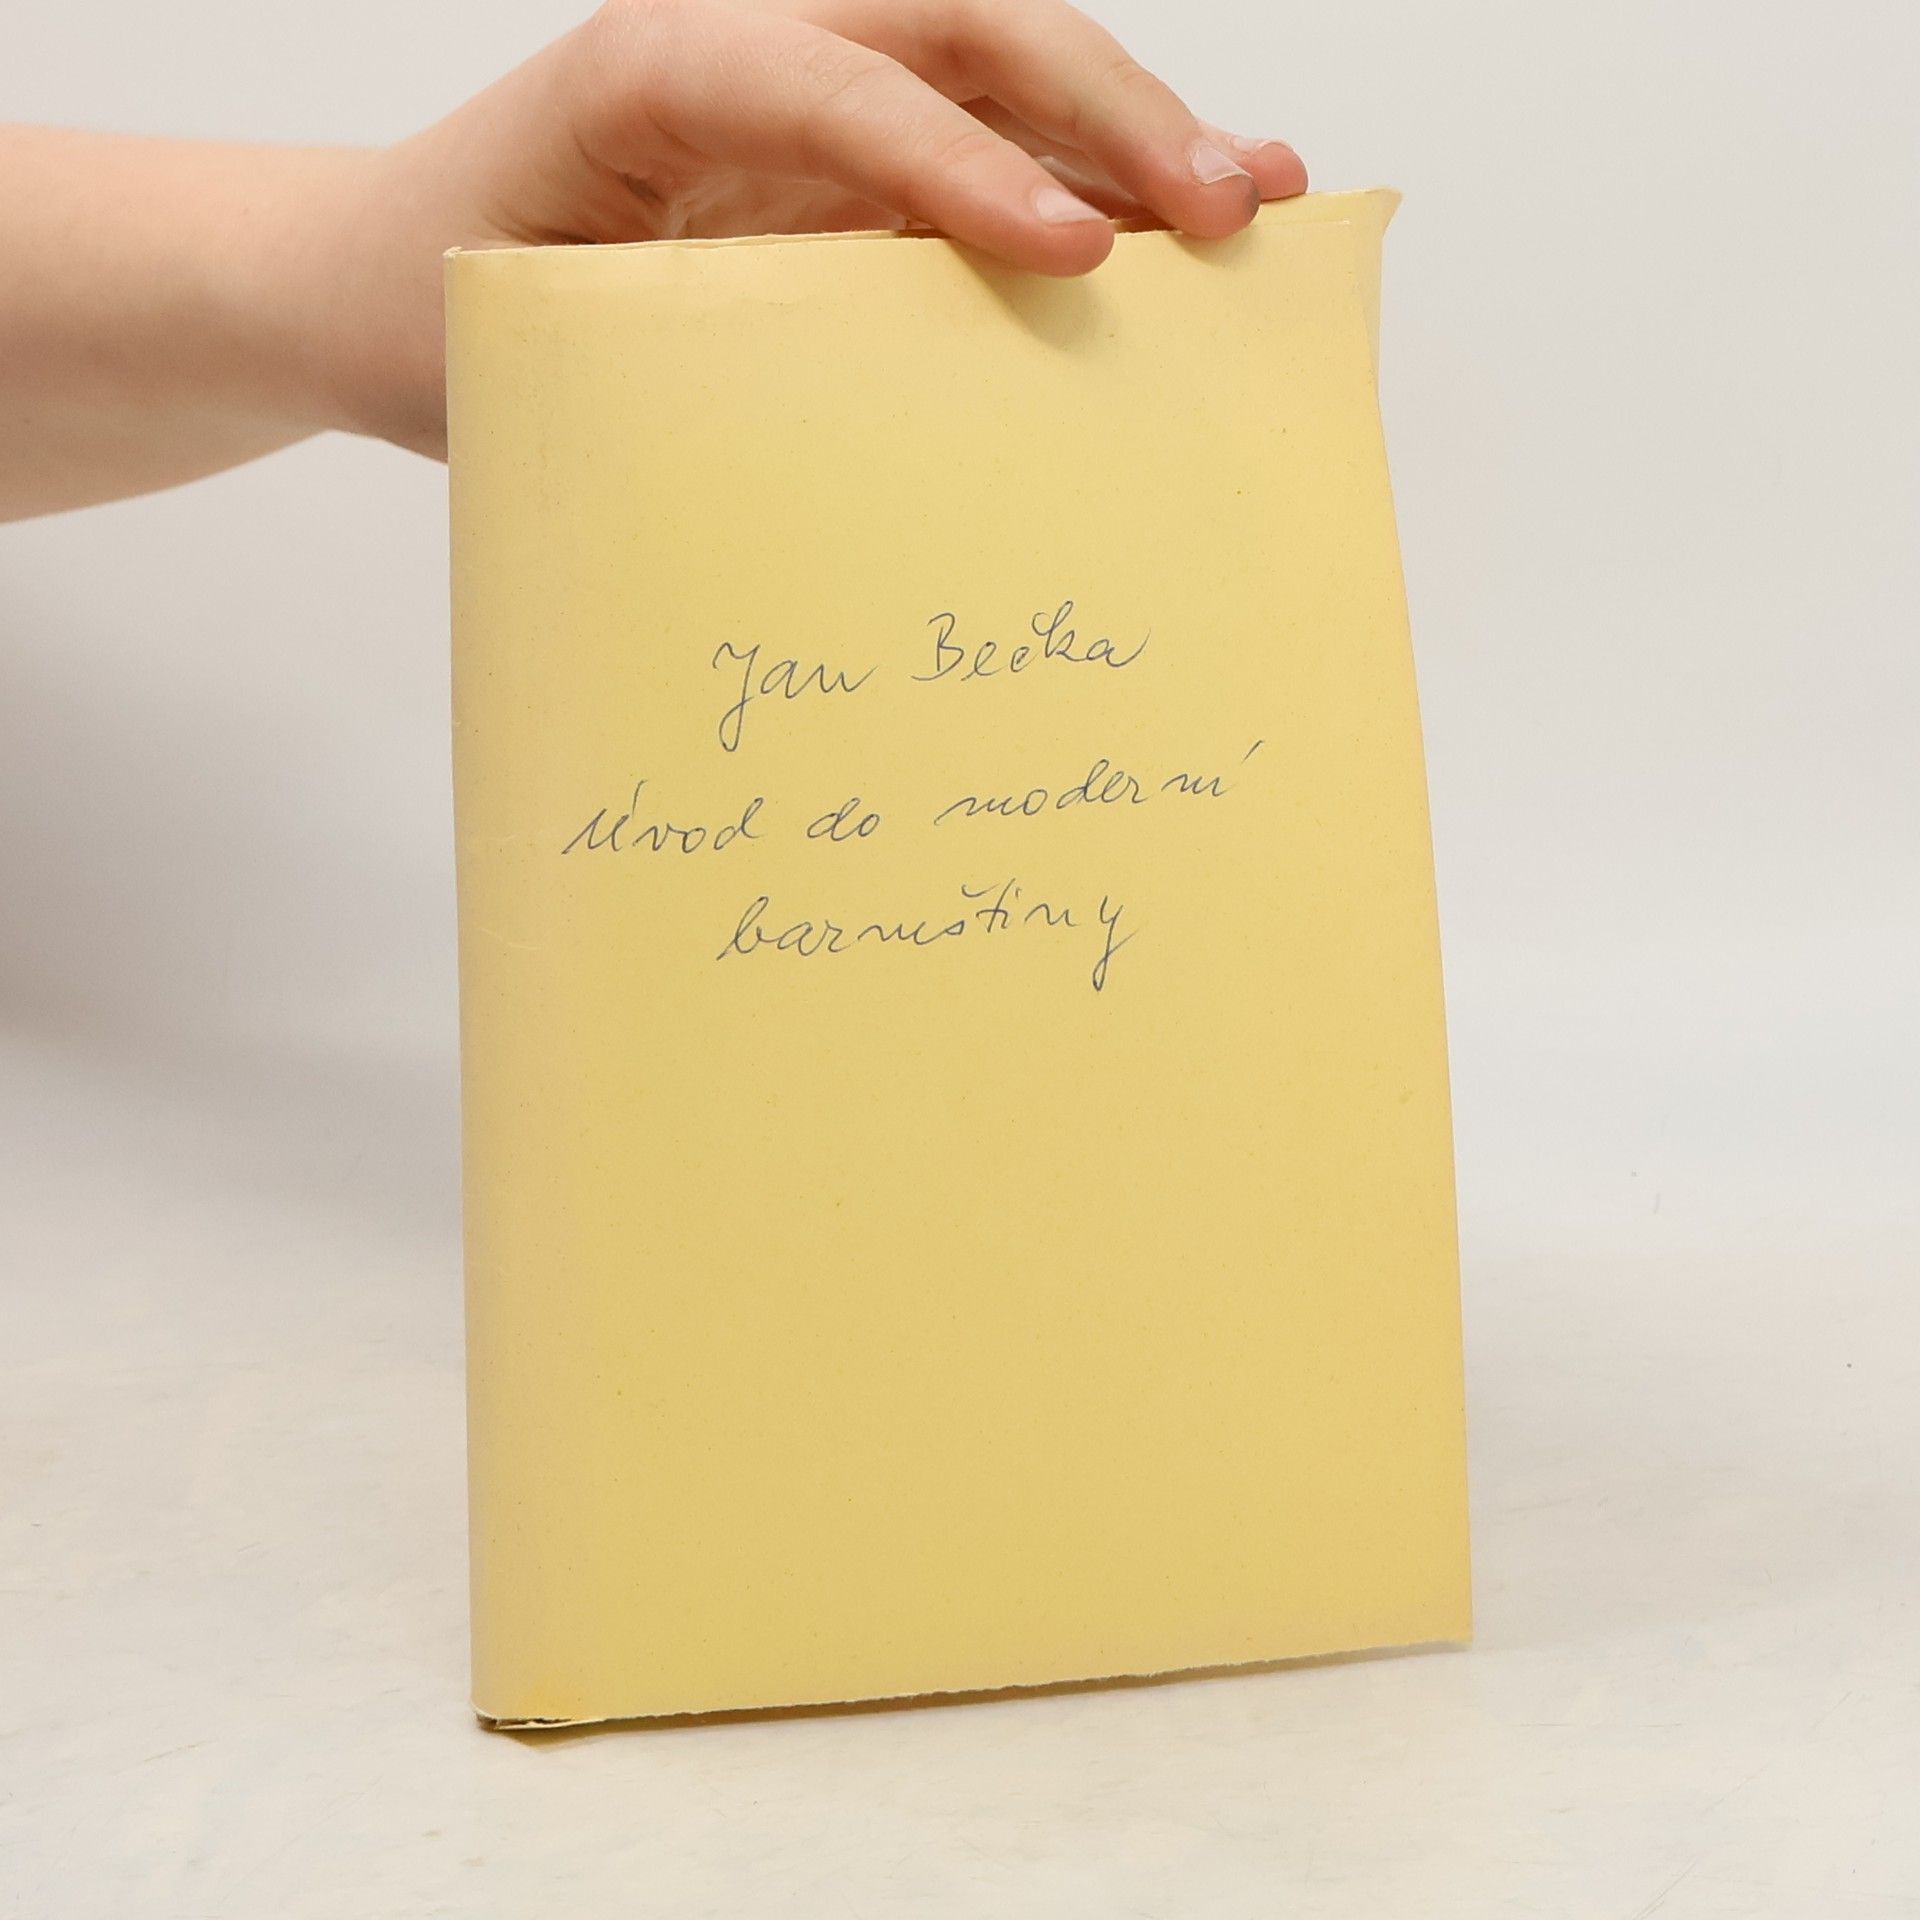 Jan Bečka
Úvod do moderní
barmštiny